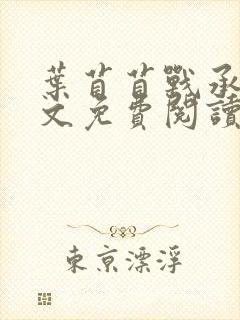 葉苜苜戰承
文免費閱讀
東京漂浮